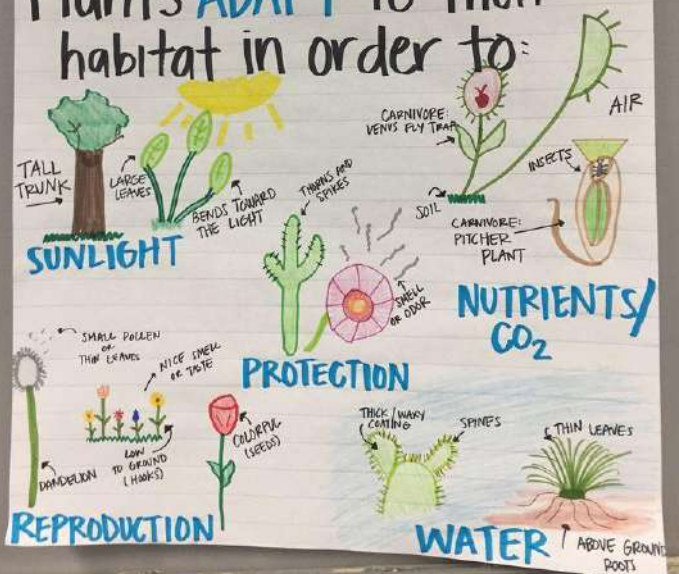 Plants ADAPT to their
habitat in order to:
TALL
TRUNK
LARGE
LEAVES
BENDS TOWARD
THE LIGHT
SUNLIGHT
THORNS AND
SPIKES
SMELL
OR ODOR
PROTECTION
CARNIVORE:
VENUS FLY TRAP
SOIL
AIR
INSECTS
CARNIVORE:
PITCHER
PLANT
NUTRIENTS/
CO2
SMALL POLLEN
OR
THIN LEAVES
NICE SMELL
OR TASTE
DANDELION
LOW
TO GROUND
(HOOKS)
COLORFUL
(SEEDS)
REPRODUCTION
THICK/WAXY
COATING
SPINES
THIN LEAVES
ABOVE GROUND
ROOTS
WATER